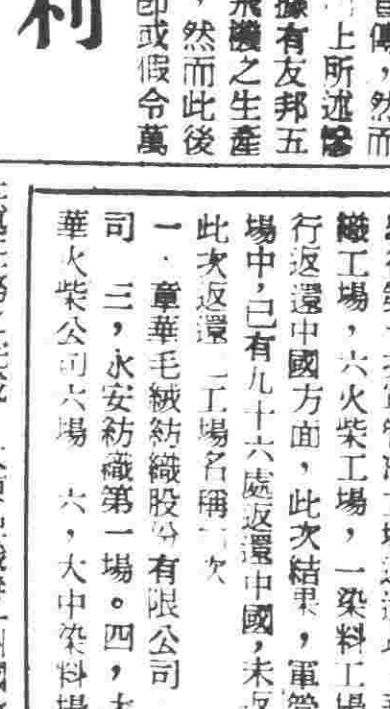 傳，然而
上所述
據有友邦五
飛機之生產
，然而此後
即或假令萬
利
織工場，六火柴工場，一染料工場
行返還中國方面，此次結果，軍管
場中，已有九十六處返還中國，未返
此次返還 工場名稱 次
一．章華毛絨紡織股份有限公司
司 三，永安紡織第一場。四，大
華火柴公司六場 六，大中染料場